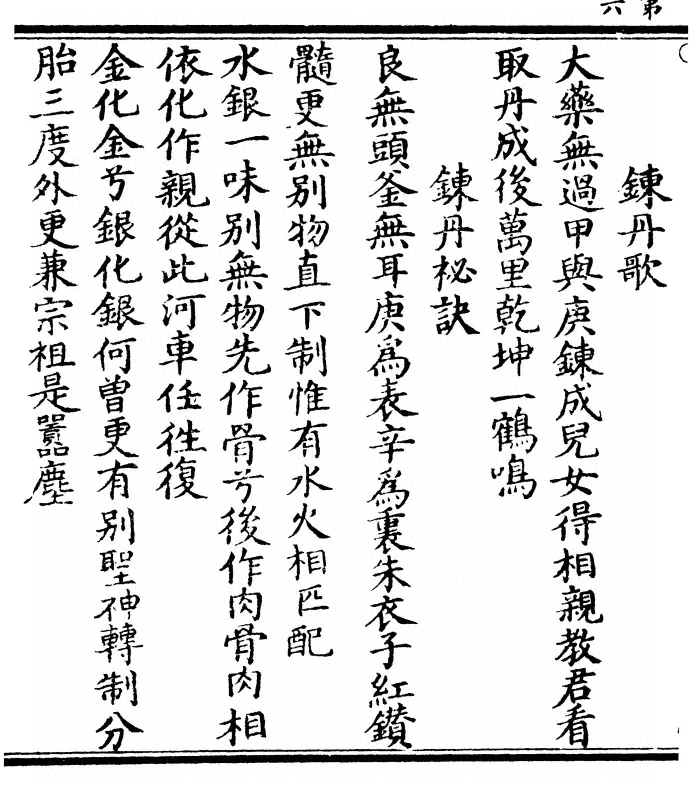 第六
鍊丹歌
大藥無過甲與庚鍊成兒女得相親教君看
取丹成後萬里乾坤一鶴鳴
鍊丹祕訣
良無頭釜無耳庚爲表辛爲裏朱衣子紅鑚
髓更無别物直下制惟有水火相匹配
水銀一味别無物先作骨兮後作肉骨肉相
依化作親從此河車任徃復
金化金兮銀化銀何曽更有别聖神轉制分
胎三度外更兼宗祖是嚣塵